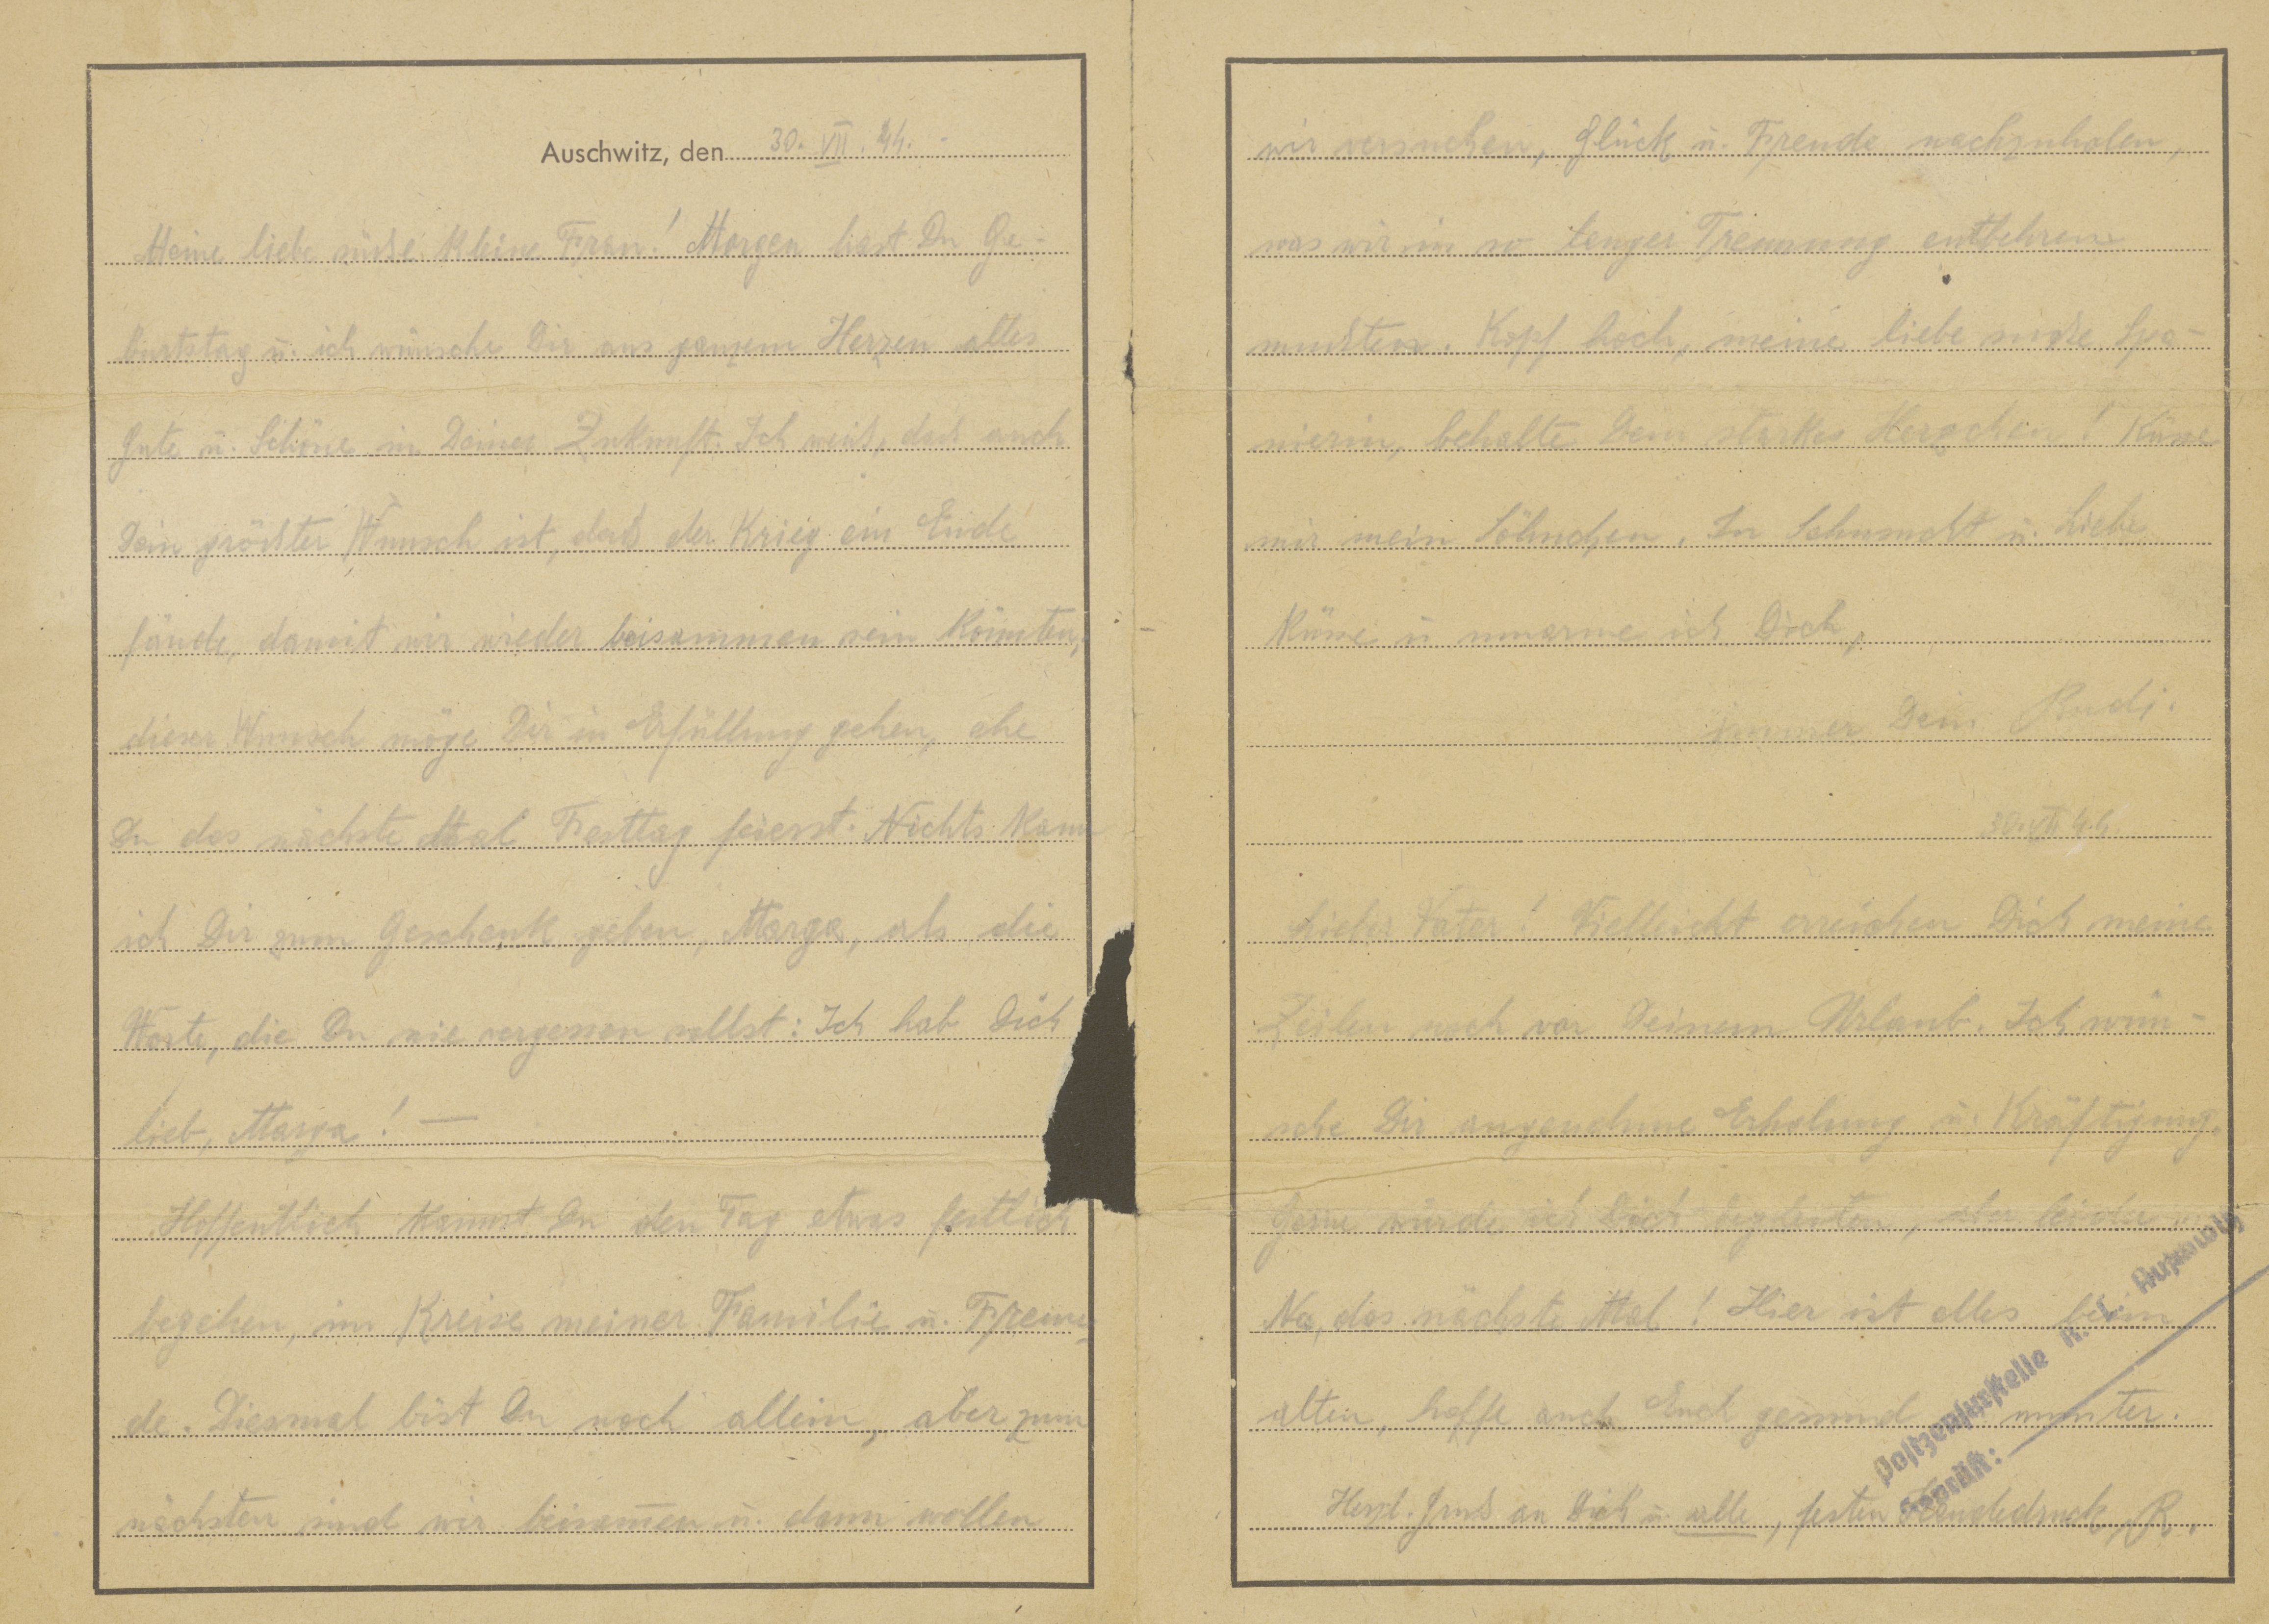 Auschwitz, den 30. VII. 44. -
Meine liebe süße kleine Frau! Morgen hast Du Ge-
burtstag u. ich wünsche Dir aus ganzem Herzen alles
Gute u. Schöne in Deiner Zukunft. Ich weiß, daß auch
Dein größter Wunsch ist, daß der Krieg ein Ende
fände, damit wir wieder beisammen sein könnten,
dieser Wunsch möge Dir in Erfüllung gehen, ehe
Du das nächste Mal Festtag feierst. Nichts kann
ich Dir zum Geschenk geben, Marga, als die
Worte, die Du nie vergessen sollst: Ich hab Dich
lieb, Marga! —
Hoffentlich kannst Du den Tag etwas festlich
begehen, im Kreise meiner Familie u. Freun-
de. Diesmal bist Du noch allein, aber zum
nächsten sind wir beisammen u. dann wollen
wir versuchen, Glück u. Freude nachzuholen,
was wir in so langer Trennung entbehren
mußten. Kopf hoch, meine liebe süße Spa-
nierin, behalte Dein starkes Herzchen! Küsse
mir mein Söhnchen. In Sehnsucht u. Liebe
küsse u umarme ich Dich,
immer Dein Rudi.
30. VII. 44.
Lieber Vater! Vielleicht erreichen Dich meine
Zeilen noch vor Deinem Urlaub. Ich wün-
sche Dir angenehme Erholung u. Kräftigung.
Gerne würde ich Dich begleiten, aber leider
Na, das nächste Mal! Hier ist alles beim
alten, hoffe auch Euch gesund munter.
Herzl. Gruß an Dich u. alle, festen Händedruck, R.
Postzensurstelle K. L. Auschwitz
Geprüft: